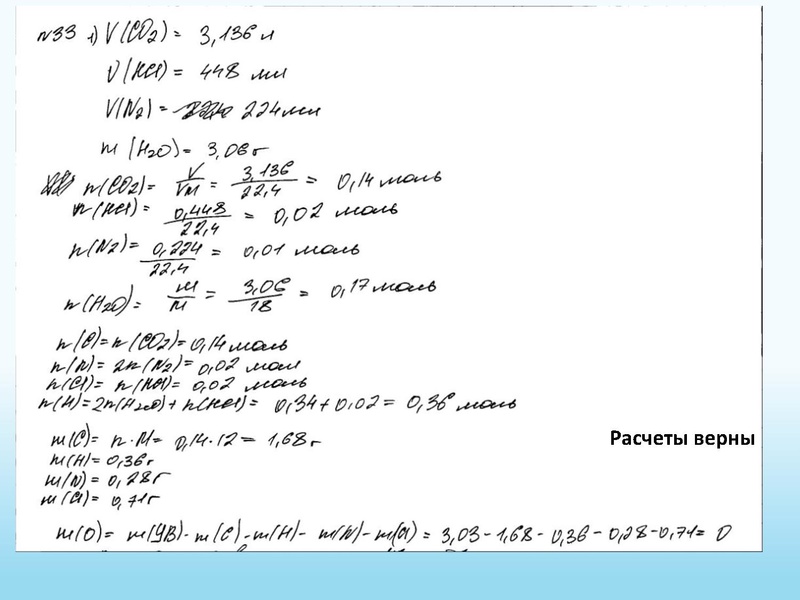 №33 1) V(CO₂) = 3,136 л
V(HCl) = 448 мл
V(N₂) = 224 мл
m(H₂O) = 3,06 г
n(CO₂) = V/Vм = 3,136/22,4 = 0,14 моль
n(HCl) = 0,448/22,4 = 0,02 моль
n(N₂) = 0,224/22,4 = 0,01 моль
n(H₂O) = m/M = 3,06/18 = 0,17 моль
n(C) = n(CO₂) = 0,14 моль
n(N) = 2n(N₂) = 0,02 мол
n(Cl) = n(HCl) = 0,02 моль
n(H) = 2n(H₂O) + n(HCl) = 0,34 + 0,02 = 0,36 моль
m(C) = n·M = 0,14·12 = 1,68 г
Расчеты верны
m(H) = 0,36 г
m(N) = 0,28 г
m(Cl) = 0,71 г
m(O) = m(УВ) - m(C) - m(H) - m(N) - m(Cl) = 3,03 - 1,68 - 0,36 - 0,28 - 0,71 = 0